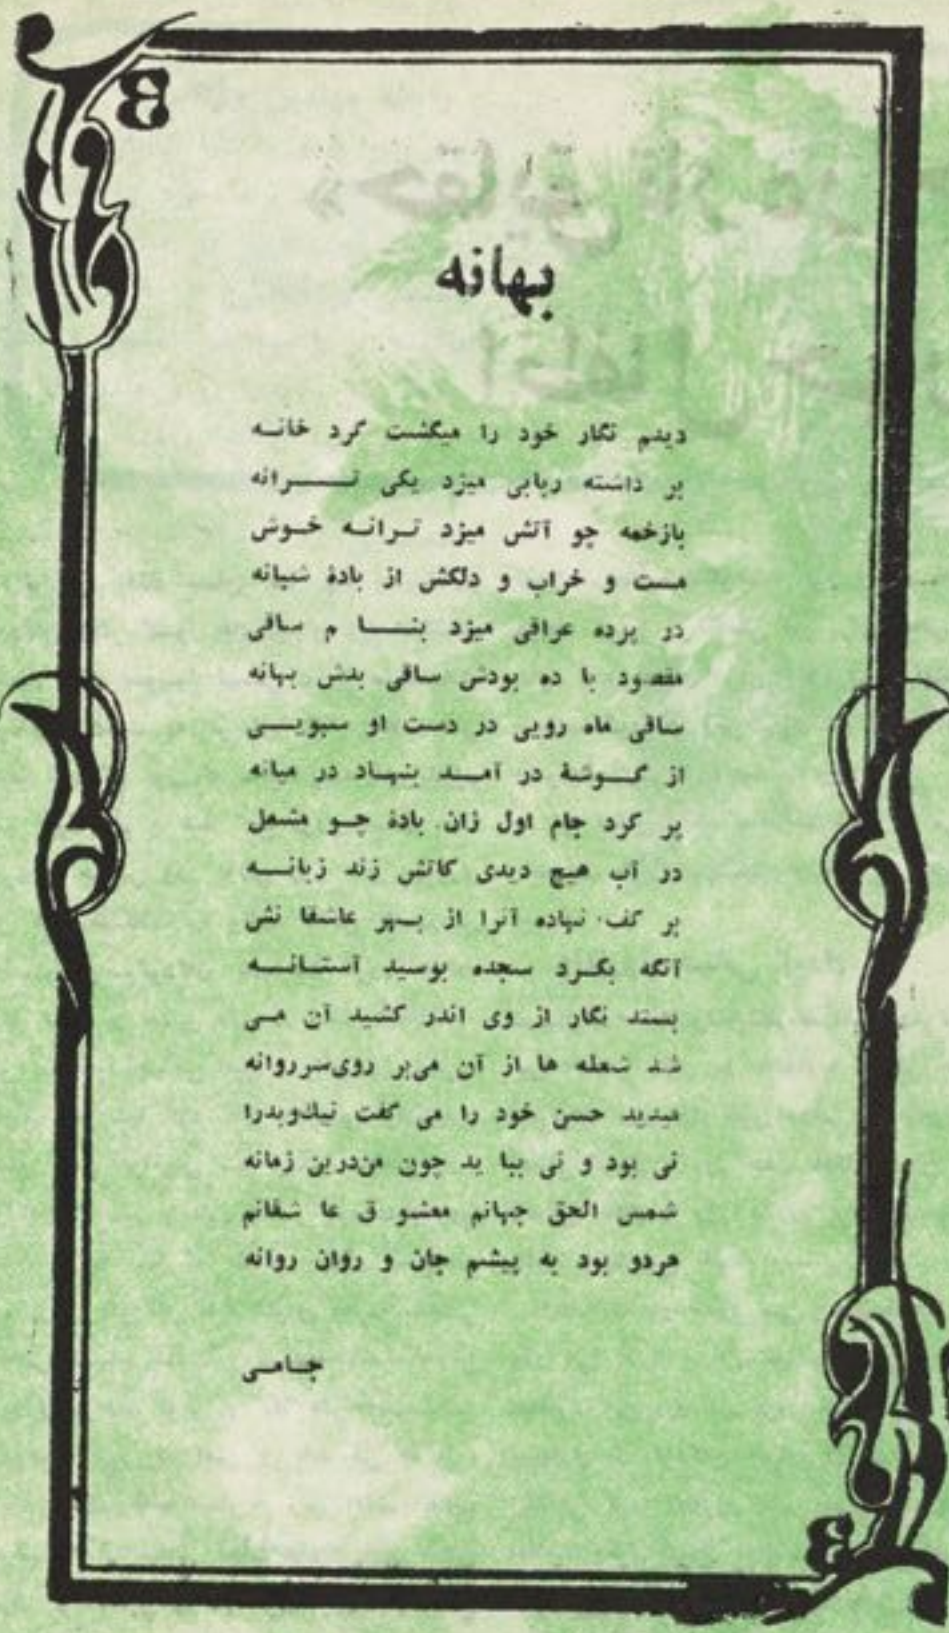 بهانه
دیدم نگار خود را میگشت گرد خانه
بر داشته ربابی میزد یکی ترانه
بازخمه چو آتش میزد ترانه خوش
مست و خراب و دلکش از بادهٔ شبانه
در پرده عراقی میزد بنا م ساقی
مقصود با ده بودش ساقی بدش بهانه
ساقی ماه رویی در دست او سبویی
از گوشهٔ در آمد بنهاد در میانه
پر کرد جام اول زان بادهٔ چو مشعل
در آب هیچ دیدی کاتش زند زبانه
بر کف نهاده آنرا از بهر عاشقا نش
آنگه بکرد سجده بوسید آستانه
بستد نگار از وی اندر کشید آن می
شد شعله ها از آن می بر روی سر روانه
میدید حسن خود را می گفت نیك و بدرا
نی بود و نی بیا ید چون من درین زمانه
شمس الحق جهانم معشو ق عا شقانم
هردو بود به پیشم جان و روان روانه
جامی